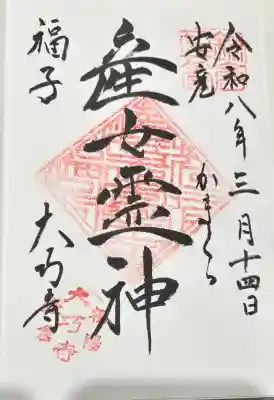 令和八年三月十四日
安産
かまくら
産女霊神
福子
大巧寺
大巧寺